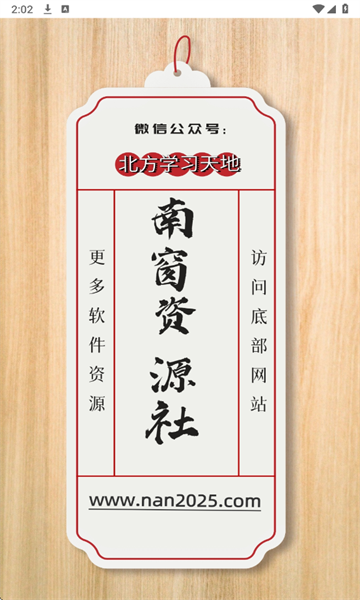 2:02
微信公众号：
北方学习天地
南窗资源社
更多软件资源
访问底部网站
www.nan2025.com